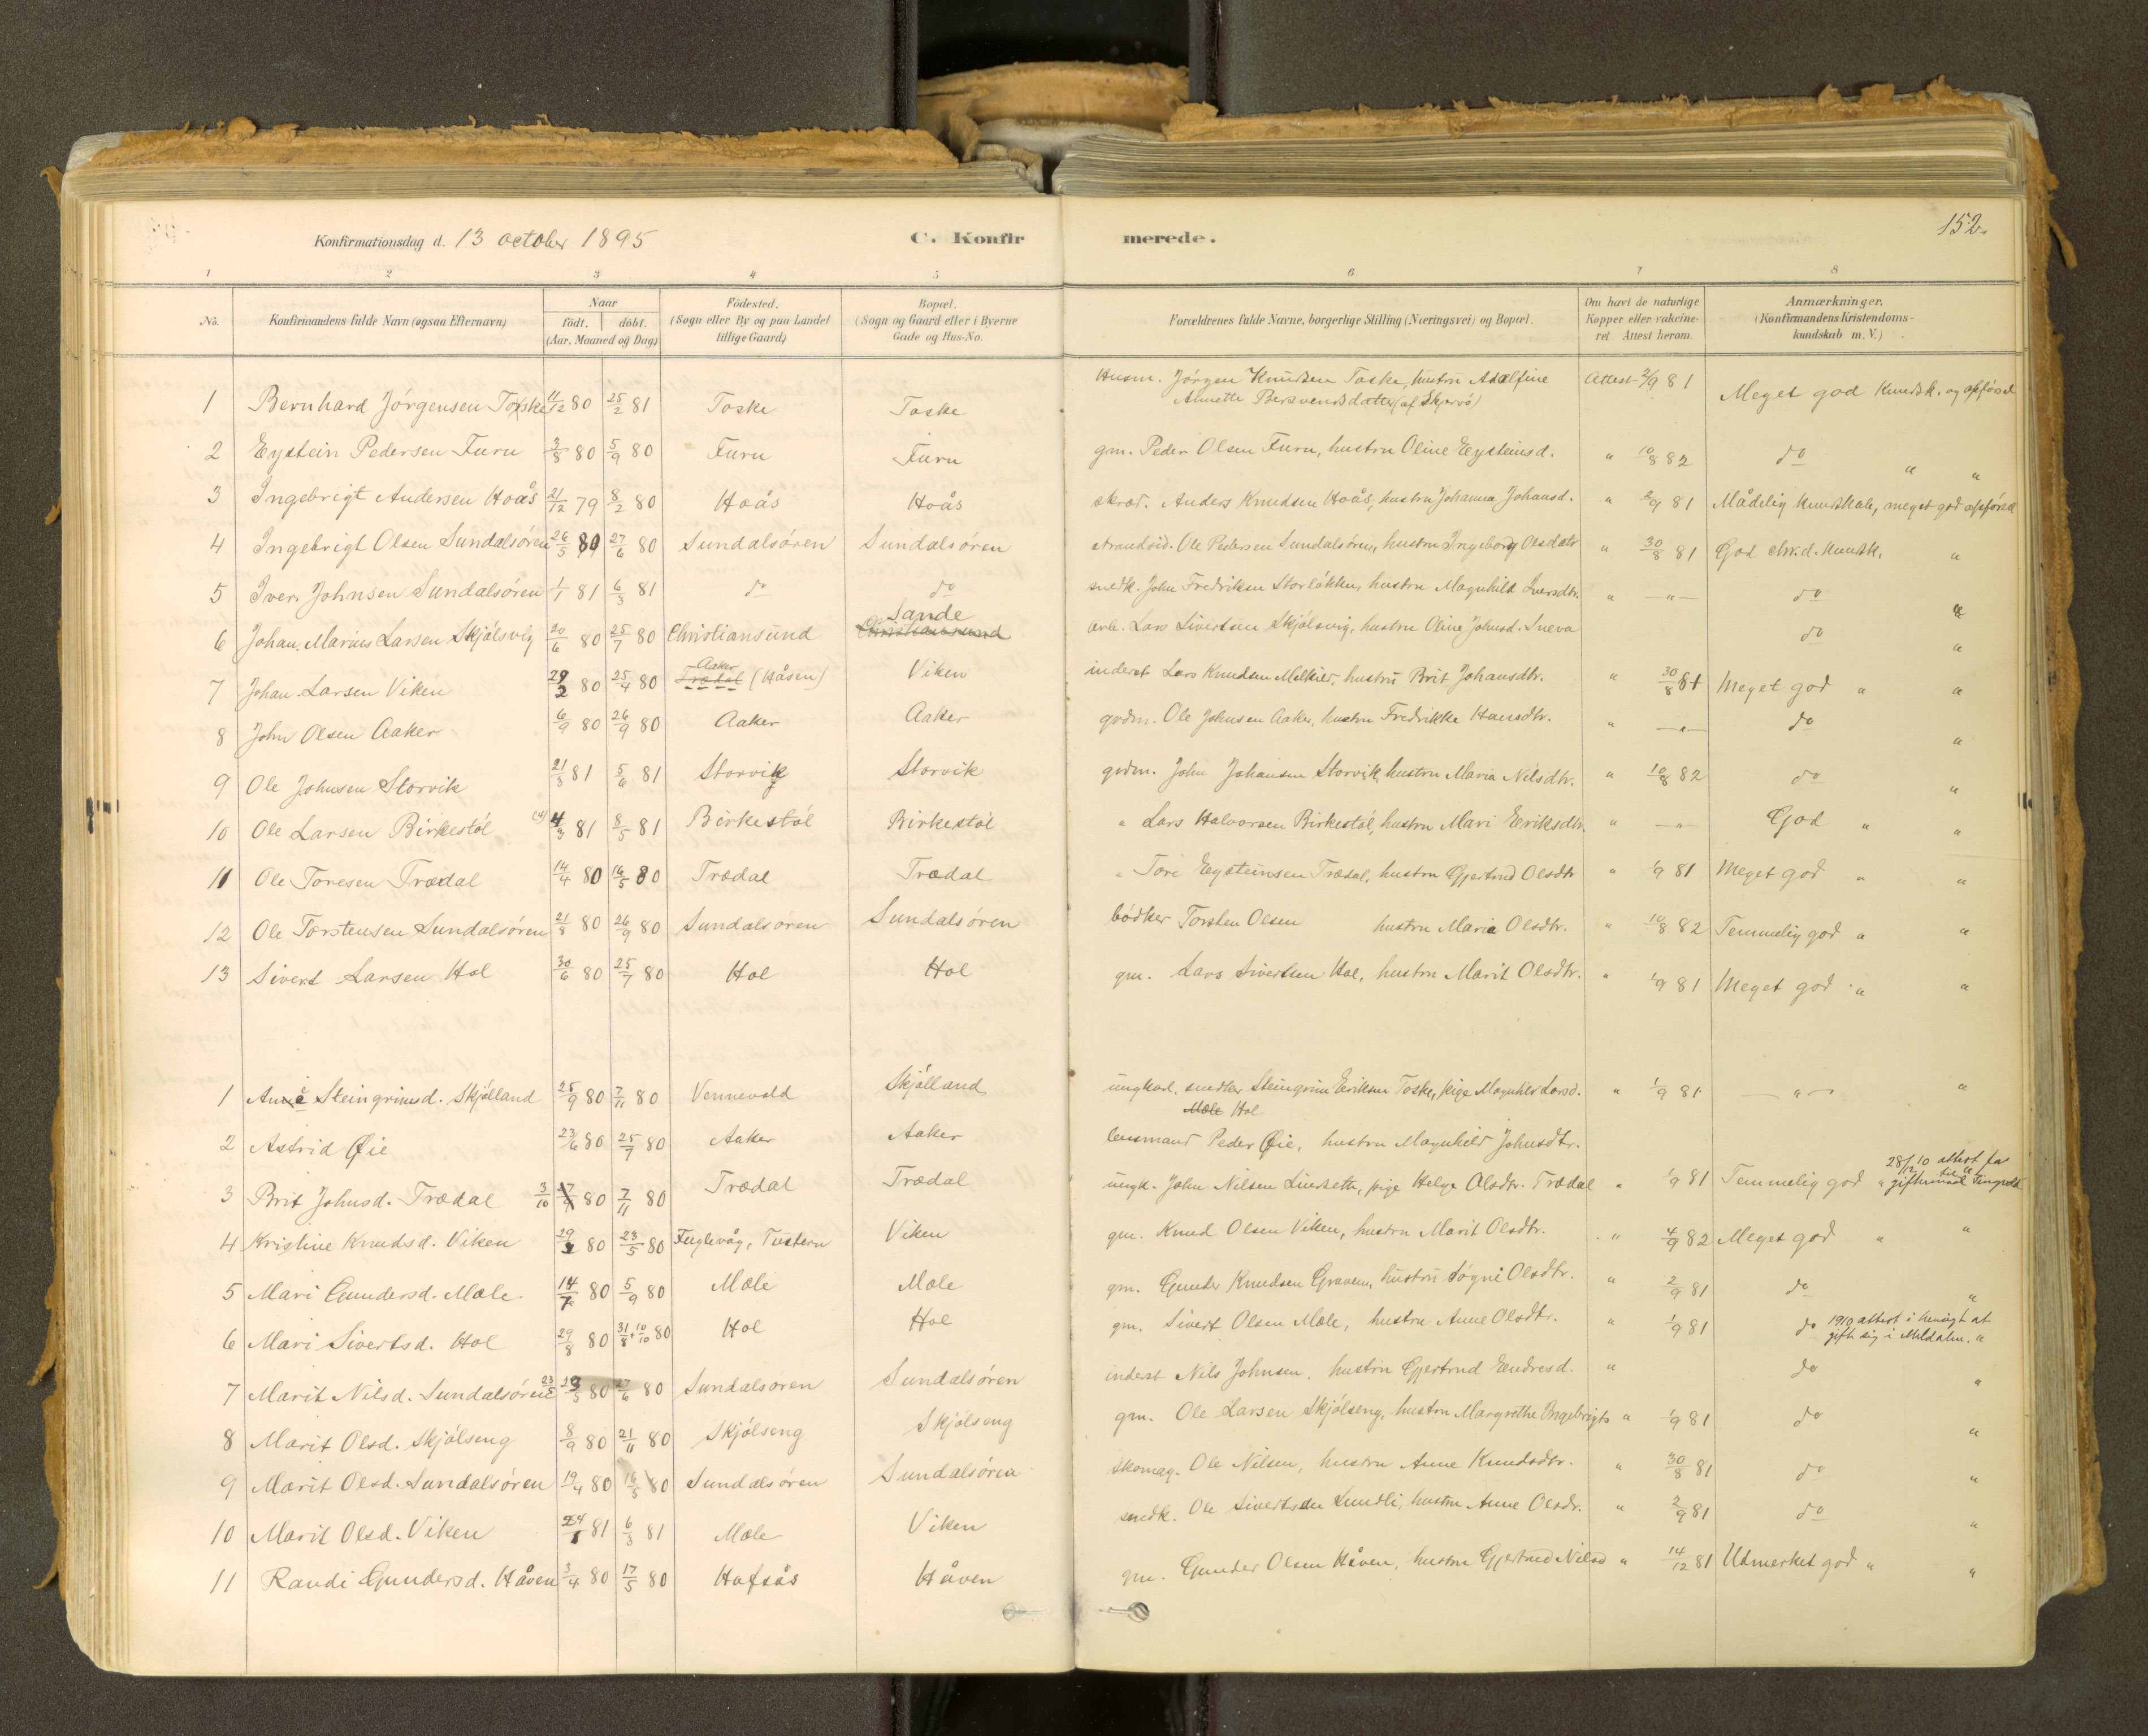 Konfirmationsdag d. 13 october 1895
C. Konfirmerede.
152.
1 2 3 4 5 6 7 8
No.
Konfirmandens fulde Navn (ogsaa Efternavn)
Naar
født. døbt.
(Aar, Maaned og Dag)
Fødested.
(Sogn eller By og paa Landet
tillige Gaard)
Bopæl.
(Sogn og Gaard eller i Byerne
Gade og Hus-No.
Forældrenes fulde Navne, borgerlige Stilling (Næringsvei) og Bopæl.
Om havt de naturlige
Kopper eller vakcine-
ret Attest herom.
Anmærkninger.
(Konfirmandens Kristendoms-
kundskab m. V.)
1 Bernhard Jörgensen Toske 11/12 80 25/2 81 Toske Toske Husm. Jörgen Knudsen Toske, hustru Adolfine Attest 2/9 81 Meget god Kundsk. og opförsel
Annette Bersvendsdatter (af Skjervö)
2 Eystein Pedersen Furu 3/8 80 5/9 80 Furu Furu gm. Peder Olsen Furu, hustru Oline Eysteinsd. " 10/8 82 do " "
3 Ingebrigt Andersen Hoås 21/12 79 8/2 80 Hoås Hoås skræd. Anders Knudsen Hoås, hustru Johanna Johansd. " 2/9 81 Mådelig kundskab, meget god opförsel
4 Ingebrigt Olsen Sundalsören 26/5 80 27/6 80 Sundalsören Sundalsören strandsid. Ole Pedersen Sundalsören, hustru Ingeborg Olsdatr " 30/8 81 God chr.d. kundsk. "
5 Iver Johnsen Sundalsören 1/1 81 6/3 81 do do snedk. John Fredriksen Storløkken, hustru Magnhild Iversdtr. " — " — do "
6 Johan Marius Larsen Skjölsvig 20/6 80 25/7 80 Christiansund Sande Christiansund arb. Lars Sivertsen Skjölsvig, hustru Oline Johnsd. Sneva do "
7 Johan Larsen Viken 29/2 80 25/4 80 Aaker Trædal (Håsen) Viken inderst Lars Knudsen Melkild, hustru Brit Johansdtr. " 30/8 81 Meget god " "
8 John Olsen Aaker 6/9 80 26/9 80 Aaker Aaker grdm. Ole Johnsen Aaker, hustru Fredrikke Hansdtr. " — " — do "
9 Ole Johnsen Storvik 21/3 81 5/6 81 Storvik Storvik grdm. John Johansen Storvik, hustru Maria Nilsdtr. " 10/8 82 do "
10 Ole Larsen Birkestöl (4) 4/3 81 8/5 81 Birkestöl Birkestöl " Lars Halvorsen Birkestöl, hustru Mari Eriksdtr. " — " God " "
11 Ole Toresen Trædal 14/4 80 16/5 80 Trædal Trædal " Tore Eysteinsen Trædal, hustru Gjertrud Olsdtr " 1/9 81 Meget god " "
12 Ole Torstensen Sundalsören 21/8 80 26/9 80 Sundalsören Sundalsören bödker Torsten Olsen hustru Maria Olsdtr. " 10/8 82 Temmelig god " "
13 Sivert Larsen Hol 30/6 80 25/7 80 Hol Hol gm. Lars Sivertsen Hol, hustru Marit Olsdtr. " 1/9 81 Meget god " "
1 Anne Steingrimsd. Skjölland 25/9 80 7/11 80 Vennevold Skjölland ungkarl, snedker Steingrim Eriksen Toske, pige Magnhild Larsd. " 1/9 81 — " — "
Mæle Hol
2 Astrid Øie 23/6 80 25/7 80 Aaker Aaker lensmand Peder Øie, hustru Magnhild Johnsdtr.
3 Brit Johnsd. Trædal 3/10 80 7/11 80 Trædal Trædal ungk. John Nilsen Liverseth, pige Helga Olsdtr. Trædal " 1/9 81 Temmelig god " 28/12 10 attest fa
til giftermål Tingvold
4 Kristine Knudsd. Viken 29/2 80 23/5 80 Fuglevåg, Tustern Viken gm. Knud Olsen Viken, hustru Marit Olsdtr. " 4/9 82 Meget god " "
5 Mari Gundersd. Mæle 14/7 80 5/9 80 Mæle Mæle gm. Gunder Knudsen Gravem, hustru Søgni Olsdtr. " 2/9 81 do "
6 Mari Sivertsd. Hol 29/8 80 31/8 + 10/10 80 Hol Hol gm. Sivert Olsen Mæle, hustru Anne Olsdtr. " 1/9 81 do 1910 attest i hensigt at
gifte sig i Meldalen. "
7 Marit Nilsd. Sundalsören 23/5 80 27/6 80 Sundalsören Sundalsören inderst Nils Johnsen, hustru Gjertrud Endresd. " do "
8 Marit Olsd. Skjölseng 8/9 80 21/11 80 Skjölseng Skjölseng gm. Ole Larsen Skjölseng, hustru Margrethe Ingebrigts " 1/9 81 do "
9 Marit Olsd. Sundalsören 19/4 80 16/5 80 Sundalsören Sundalsören skomag. Ole Nilsen, hustru Anne Knudsdtr. " 30/8 81 do "
10 Marit Olsd. Viken 24/1 81 6/3 81 Mæle Viken snedk. Ole Sivertsen Lundli, hustru Anne Olsdr. " 2/9 81 do "
11 Randi Gundersd. Håven 3/4 80 17/5 80 Hafsås Håven gm. Gunder Olsen Håven, hustru Gjertrud Nilsd " 14/12 81 Udmerket god " "